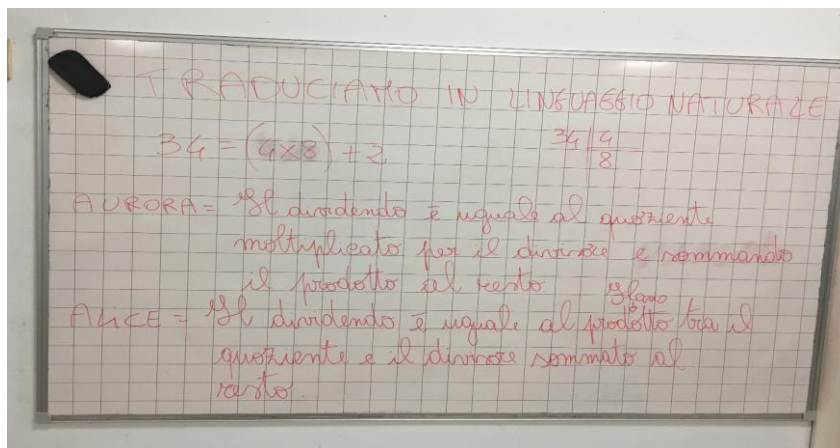 TRADUCIAMO IN LINGUAGGIO NATURALE
34 = (4x8) + 2
34 | 4
8
AURORA = Il dividendo è uguale al quoziente
moltiplicato per il divisore e sommando
il prodotto al resto
ALICE = Il dividendo è uguale al prodotto tra il
quoziente e il divisore sommato al
resto.